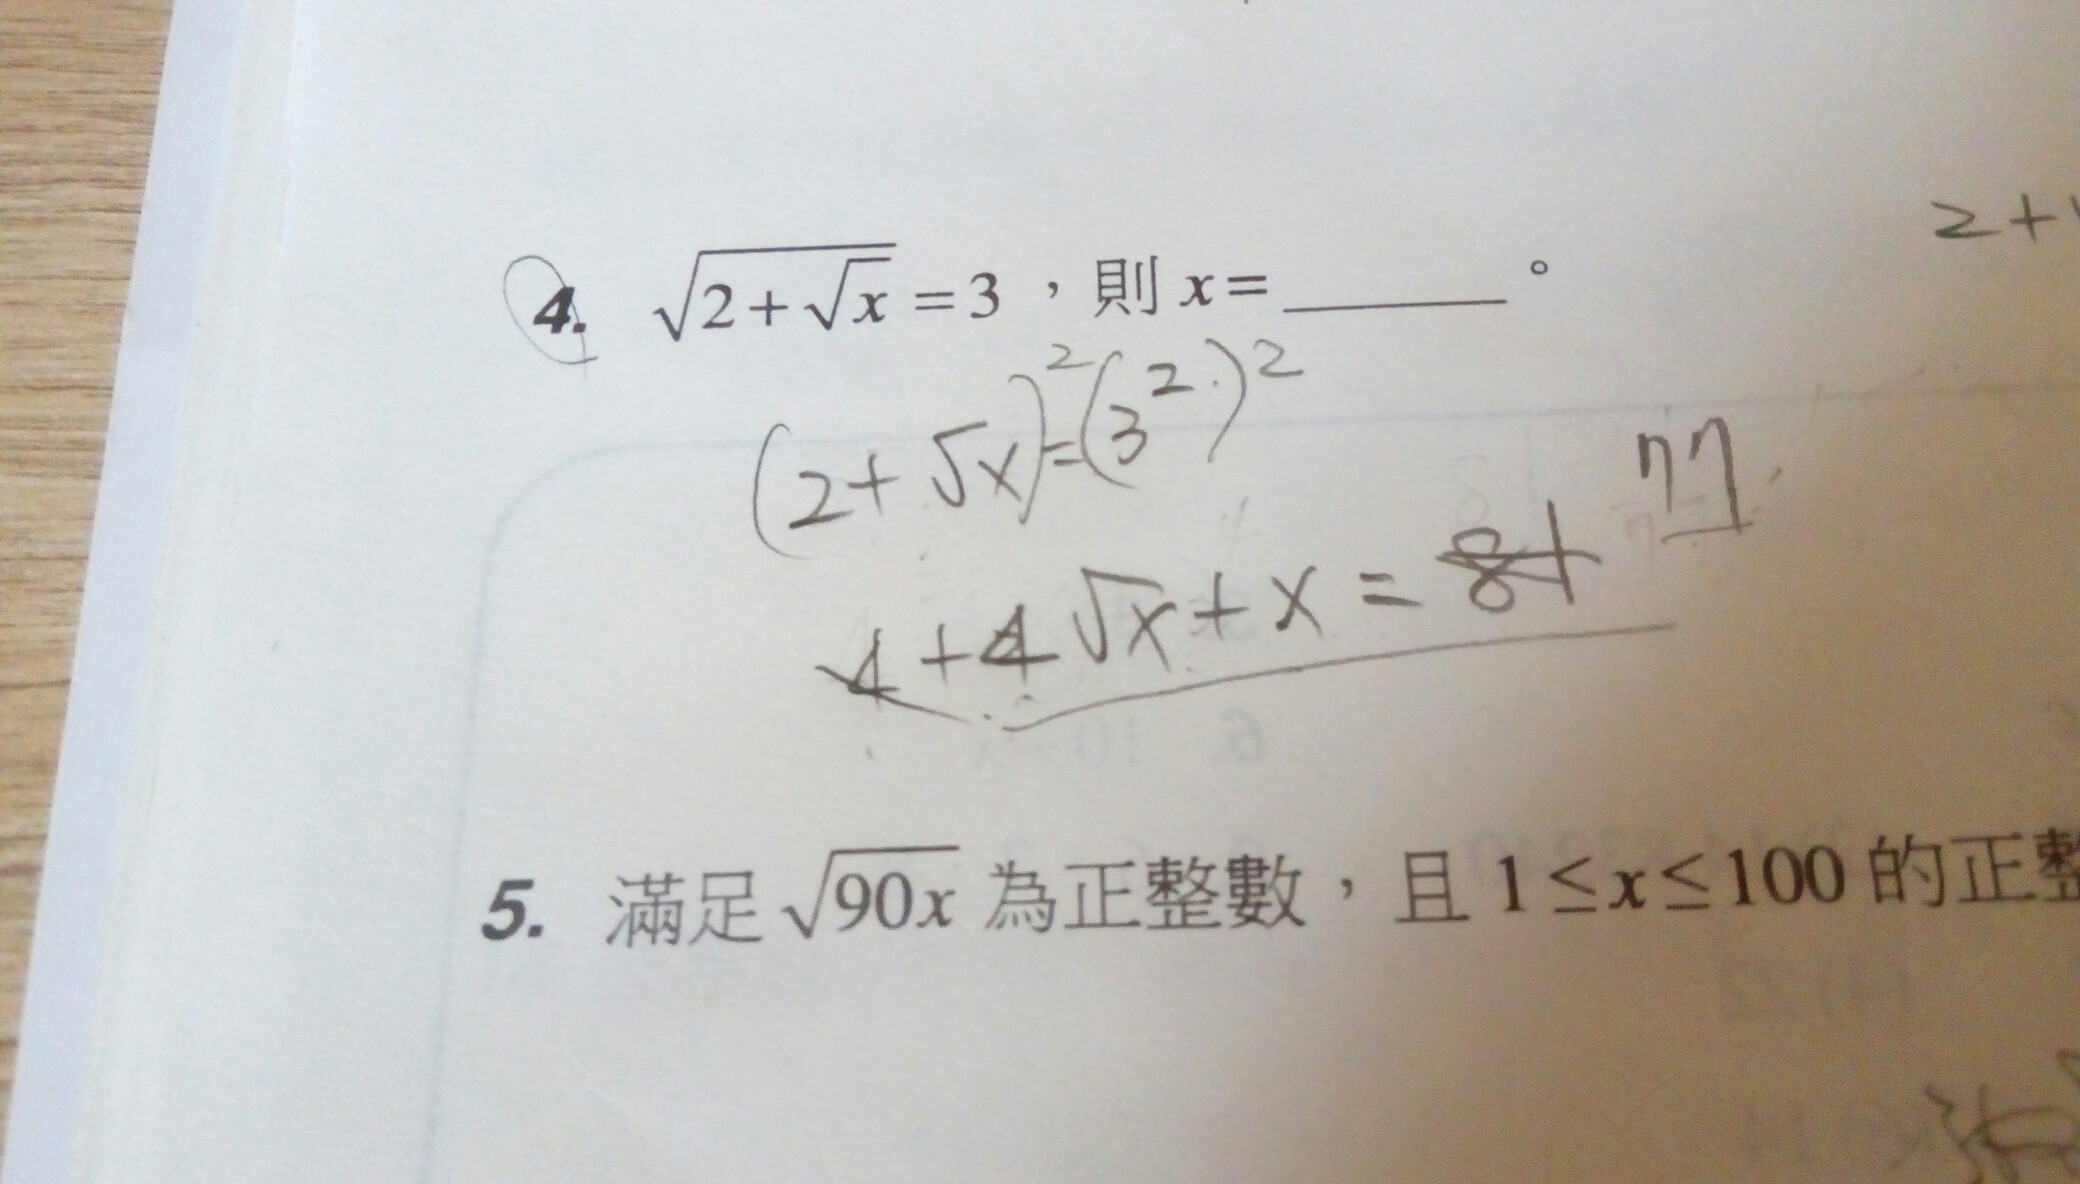 2+
4. √(2+√x) = 3，則 x = ______。
(2+√x)²=(3²)²
4+4√x+x = 81 77
5. 滿足 √(90x) 為正整數，且 1≤x≤100 的正整